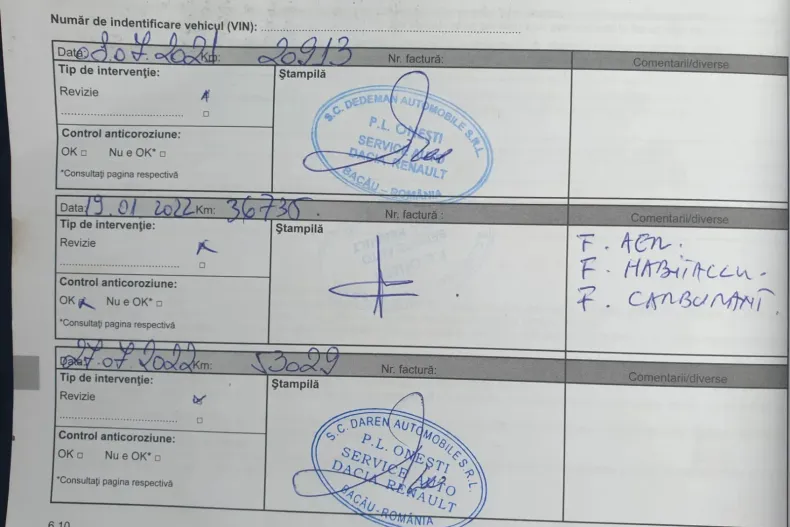 Număr de indentificare vehicul (VIN): ........................................
Data 03.07.2021 Km: 20913 Nr. factură: Comentarii/diverse
Tip de intervenție: Ștampilă
Revizie
S.C. DEDEMAN AUTOMOBILE S.R.L.
P.L. ONEȘTI
SERVICE AUTO
DACIA RENAULT
BACĂU – ROMÂNIA
Control anticoroziune:
OK □ Nu e OK* □
*Consultați pagina respectivă
Data 19.01 2022 Km: 36735. Nr. factură : Comentarii/diverse
Tip de intervenție: Ștampilă
Revizie
F. AER.
F. HABITACLU.
F. CARBURANT.
Control anticoroziune:
OK Nu e OK* □
*Consultați pagina respectivă
Data 27.07.2022 Km: 53029 Nr. factură: Comentarii/diverse
Tip de intervenție: Ștampilă
Revizie
S.C. DAREN AUTOMOBILE S.R.L.
P.L. ONEȘTI
SERVICE AUTO
DACIA RENAULT
BACĂU-ROMÂNIA
Control anticoroziune:
OK □ Nu e OK* □
*Consultați pagina respectivă
6.10